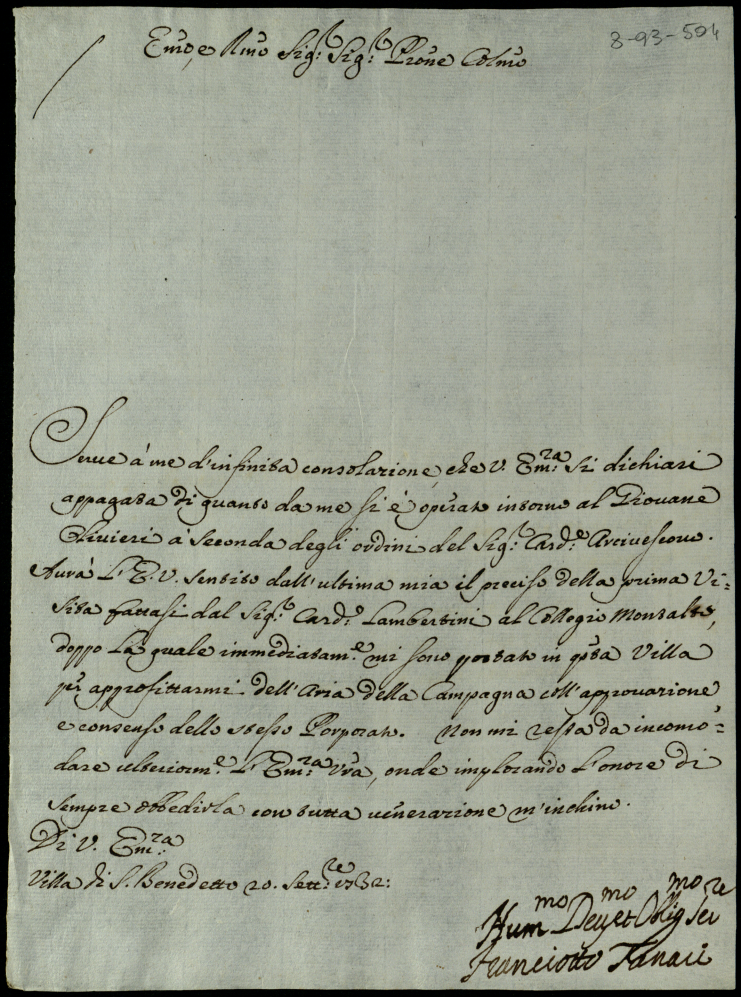 8-93-504
Emo, e Rmo Sig.re Sig.re Prone Colmo
Serue à me d'infinita consolazione, che V. Em.ra si dichiari
appagata di quanto da me si è operato intorno al Piouane
Oliuieri a seconda degli ordini del Sig.re Card.e Arciuescouo.
Aurà L'E. V. sentito dall'ultima mia il preciso della prima Vi=
sita fattasi dal Sig.re Card.e Lambertini al Collegio Montalto,
doppo La quale immediatam.e mi sono portato in qsta Villa
per approfittarmi dell'Aria della Campagna coll'approuazione
e consenso dello stesso Porporato. Non mi resta da incomo=
dare ulteriorm.e L'Em.ra Vra, onde implorando L'onore di
sempre obbedirla con tutta uenerazione m'inchino.
Di V. Em.ra
Villa di S. Benedetto 20. Sett.re 1732:
Hum.mo Deu.et Oblig.mo Ser.re
Franciotto Tanari